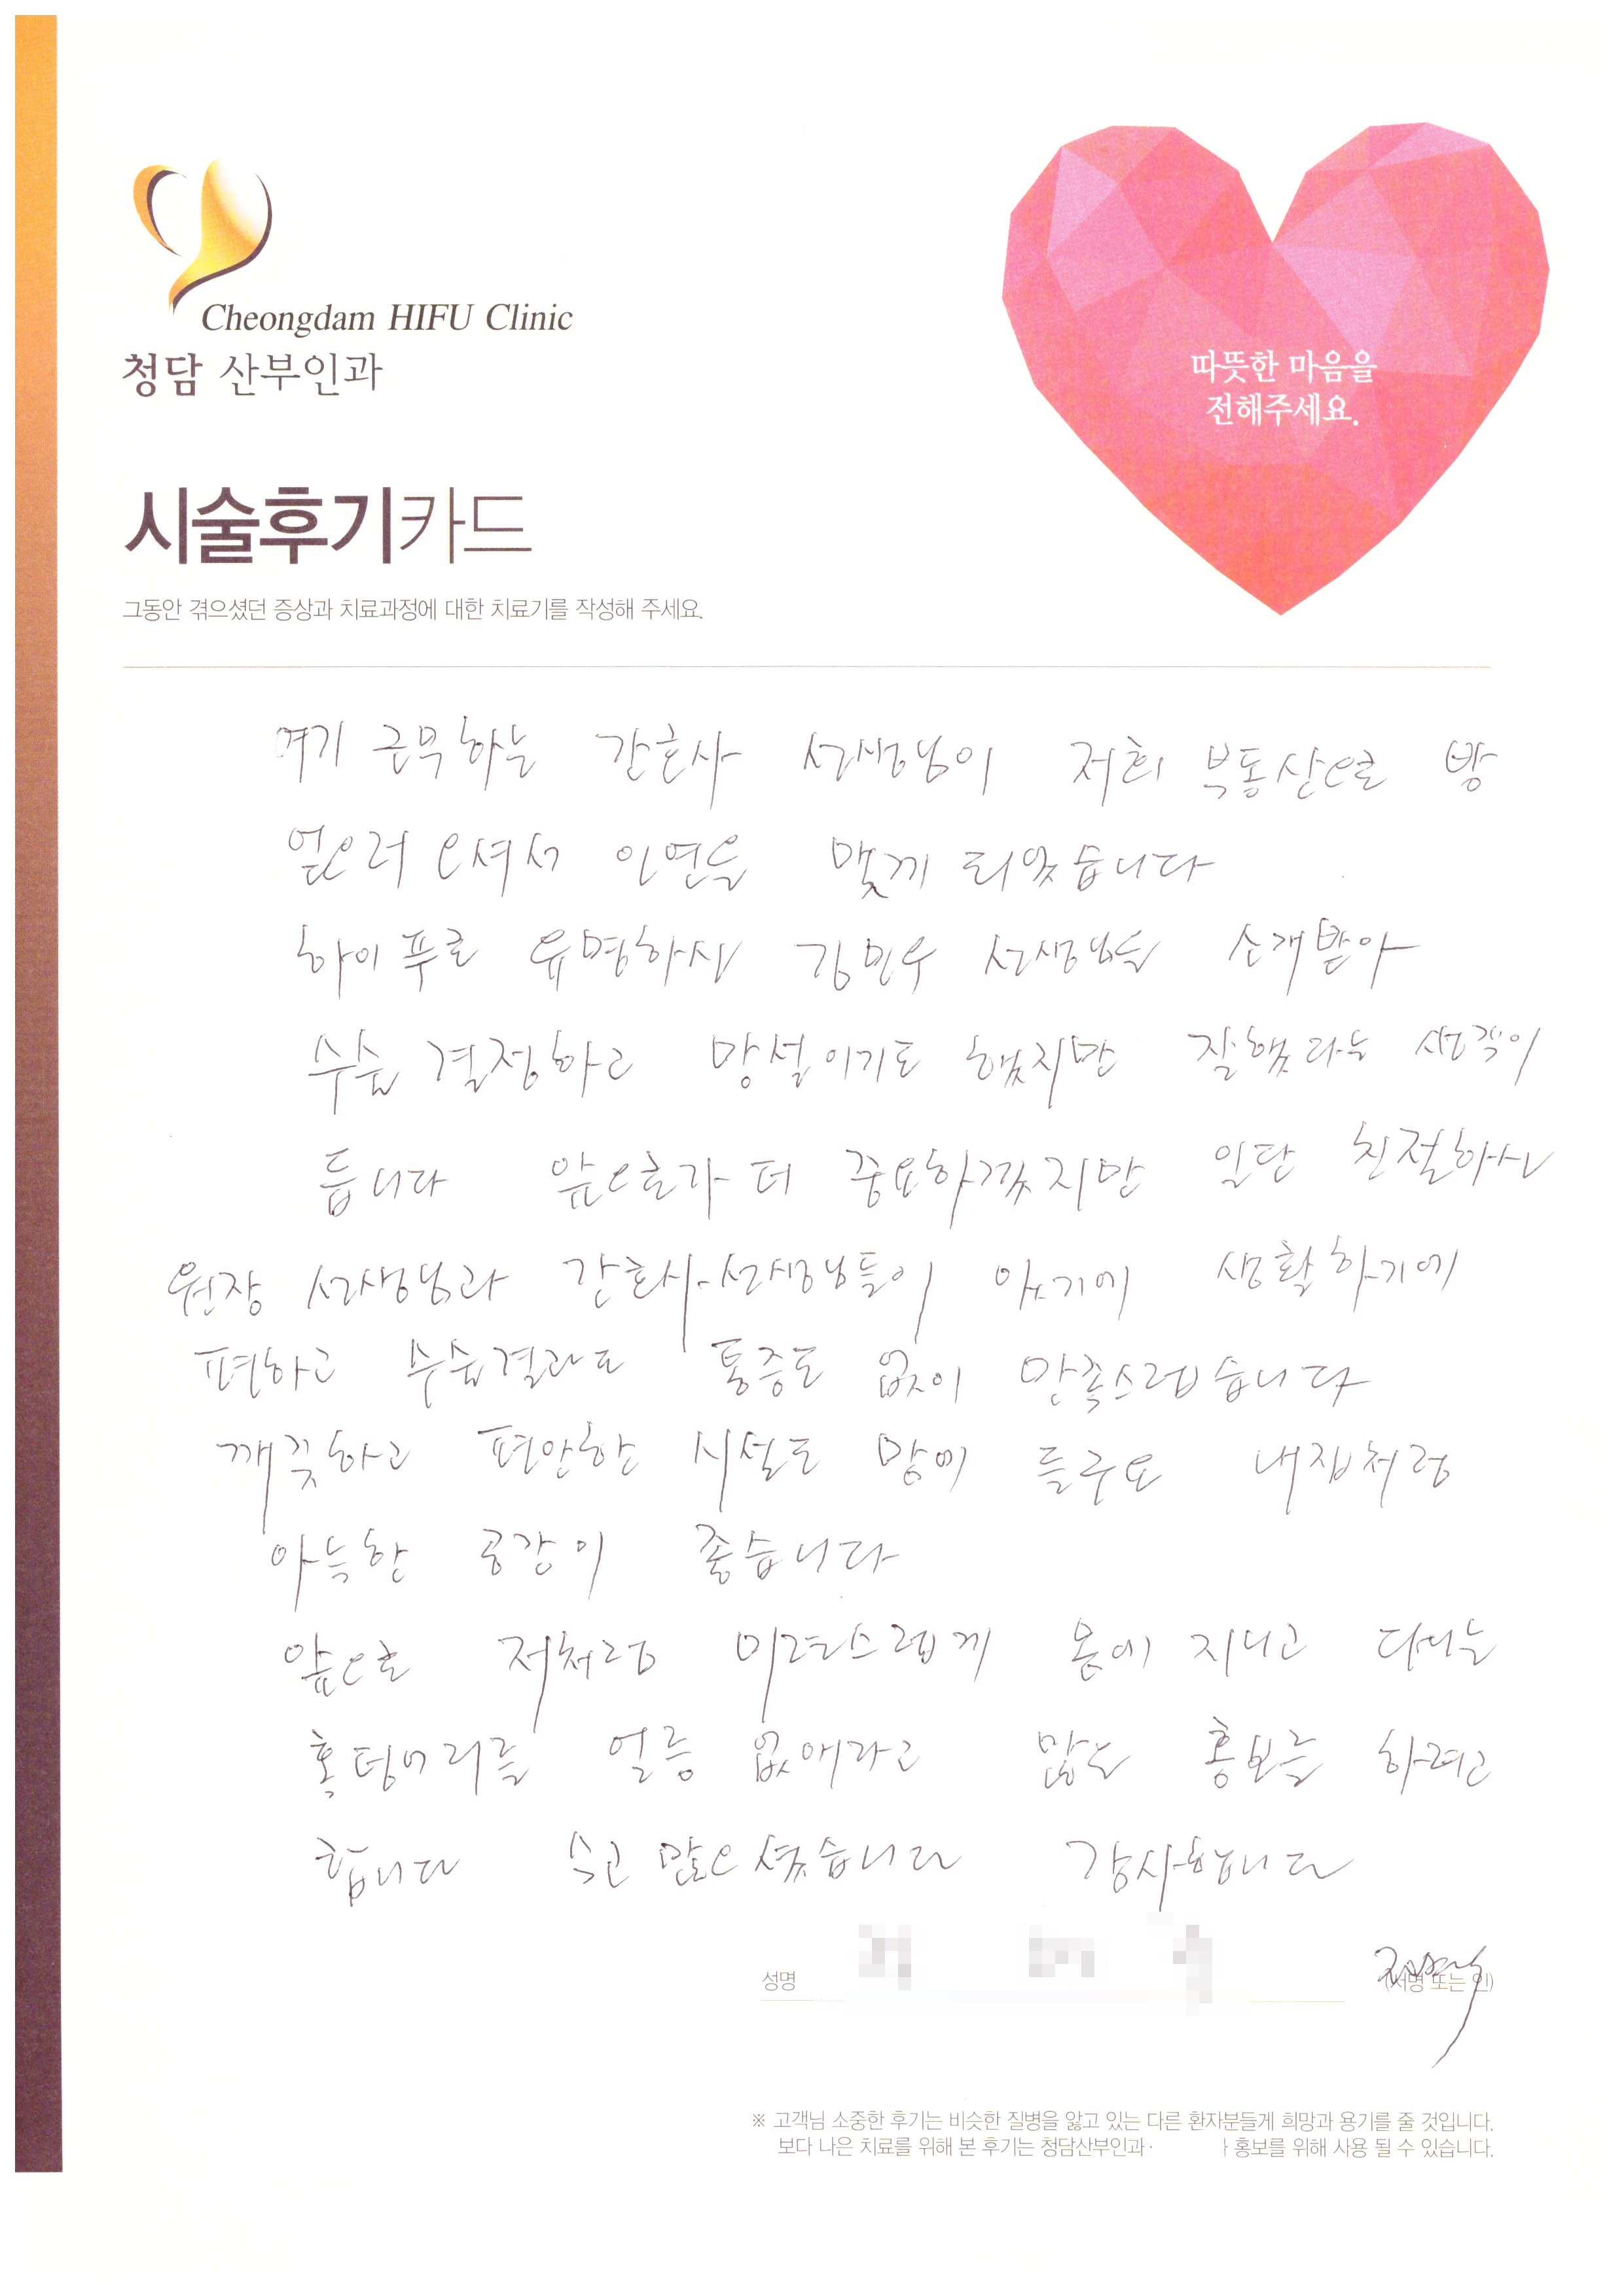 Cheongdam HIFU Clinic
청담 산부인과
따뜻한 마음을
전해주세요.
시술후기카드
그동안 겪으셨던 증상과 치료과정에 대한 치료기를 작성해 주세요.
여기 근무하는 간호사 선생님이 저희 부동산으로 방
얻으러 오셔서 인연을 맺게 되었습니다
하이푸로 유명하신 김민우 선생님을 소개받아
수술 결정하고 망설이기도 했지만 잘했다는 생각이
듭니다 앞으로가 더 중요하겠지만 일단 친절하신
원장 선생님과 간호사 선생님들이 있기에 생활하기에
편하고 수술결과도 통증도 없이 만족스럽습니다
깨끗하고 편안한 시설도 맘에 들구요 내집처럼
아늑한 공간이 좋습니다
앞으로 저처럼 미련스럽게 몸에 지니고 다니는
혹덩어리를 얼릉 없애라고 많는 홍보를 하려고
합니다 수고 많으셨습니다 감사합니다
성명 (서명 또는 인)
※ 고객님 소중한 후기는 비슷한 질병을 앓고 있는 다른 환자분들게 희망과 용기를 줄 것입니다.
보다 나은 치료를 위해 본 후기는 청담산부인과 홍보를 위해 사용 될 수 있습니다.